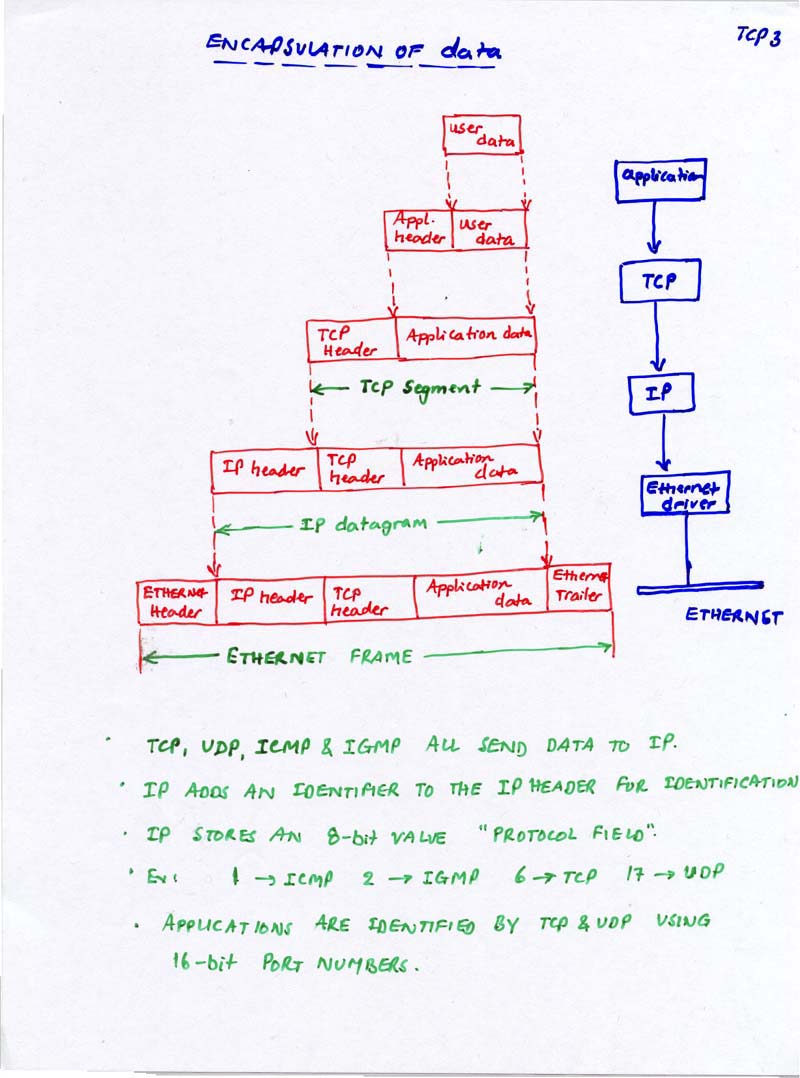 TCP 3
ENCAPSULATION OF data
user
data
Application
Appl.
header
user
data
TCP
TCP
Header
Application data
TCP Segment
IP
IP header
TCP
header
Application
data
Ethernet
driver
IP datagram
ETHERNET
Header
IP header
TCP
header
Application
data
Ethernet
Trailer
ETHERNET
ETHERNET FRAME
· TCP, UDP, ICMP & IGMP ALL SEND DATA TO IP.
· IP ADDS AN IDENTIFIER TO THE IP HEADER FOR IDENTIFICATION
· IP STORES AN 8-bit VALUE "PROTOCOL FIELD".
· Ex: 1 → ICMP 2 → IGMP 6 → TCP 17 → UDP
· APPLICATIONS ARE IDENTIFIED BY TCP & UDP USING
16-bit PORT NUMBERS.